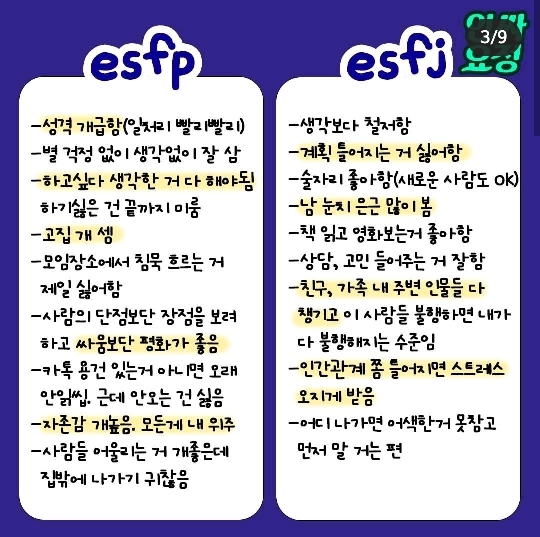 3/9
esfp
-성격 개급함(일처리 빨리빨리)
-별 걱정 없이 생각없이 잘 삼
-하고싶다 생각한 거 다 해야됨
하기싫은 건 끝까지 미룸
-고집 개 셈
-모임장소에서 침묵 흐르는 거
제일 싫어함
-사람의 단점보단 장점을 보려
하고 싸움보단 평화가 좋음
-카톡 용건 있는거 아니면 오래
안읽씹. 근데 안오는 건 싫음
-자존감 개높음. 모든게 내 위주
-사람들 어울리는 거 개좋은데
집밖에 나가기 귀찮음
esfj
-생각보다 철저함
-계획 틀어지는 거 싫어함
-술자리 좋아함(새로운 사람도 OK)
-남 눈치 은근 많이 봄
-책 읽고 영화보는거 좋아함
-상담, 고민 들어주는 거 잘함
-친구, 가족 내 주변 인물들 다
챙기고 이 사람들 불행하면 내가
다 불행해지는 수준임
-인간관계 쫌 틀어지면 스트레스
오지게 받음
-어디 나가면 어색한거 못참고
먼저 말 거는 편